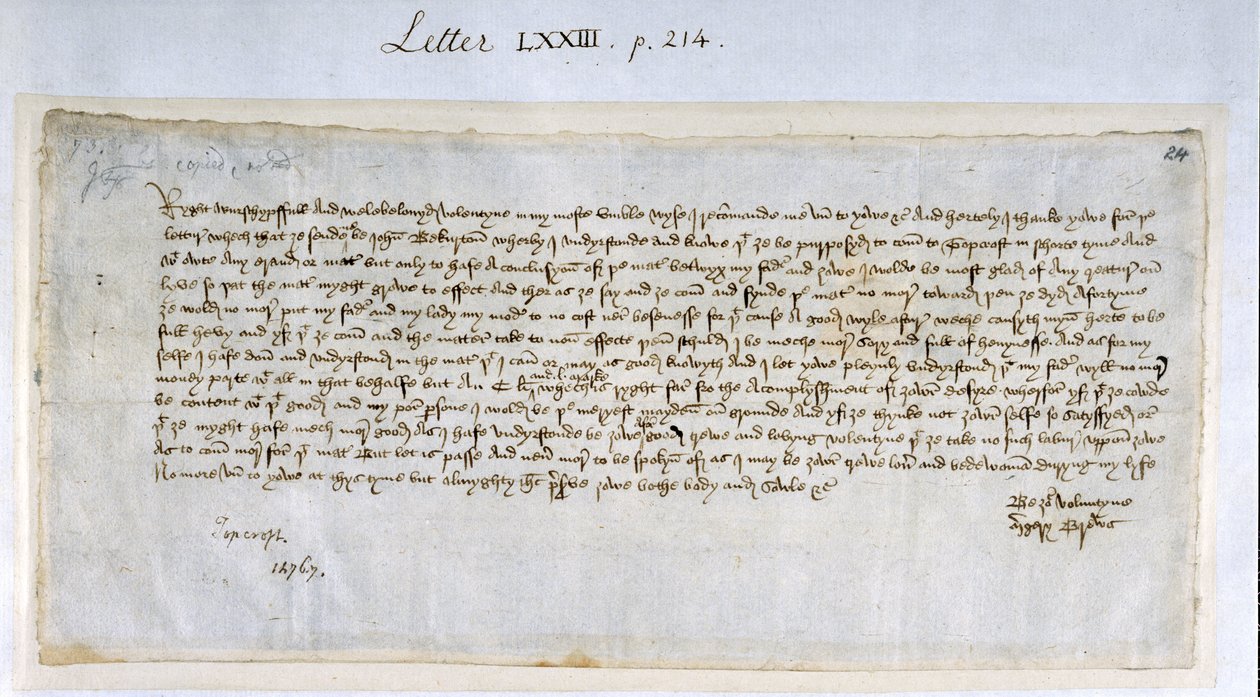 Letter LXXIII. p. 214.
24
73.
copied
Ryght wurschypffull and welebelovyd Volentyne in my moste vmble wyse I recomande me vn to yowe &c And hertely I thanke yowe for þe
lettur whech that ȝe sende me be John Bekurton wherby I vndyrstonde and knowe þt ȝe be purposyd to com to Topcroft in schorte tyme And
wt owte Any erand or matr but only to hafe A conclusyon of þe matr betwyx my fadr and ȝowe I wolde be most glad of Any creatur on
lyve so þat the matr myght growe to effect And ther as ȝe say and ȝe com and fynde þe matr no mor toward þen ȝe dyd Afortyme
ȝe wold no mor put my fadr and my lady my modr to no cost ner besenesse for þt cause A good wyle aftur weche causyth myn herte to be
full hevy and yf þt ȝe com and the mater take to non effecte þen schuld I be meche mor sory and full of hevynesse. And as for my
selfe I hafe don and vndyrstond in the matr þt I can or may as good knowyth And I let yowe pleynly vndyrstond þt my fadr wyll no mor
money parte wt all in that behalfe but An C li and l marke whech is ryght far fro the Acomplyshment of ȝowr desyre wherfor yf þt ȝe cowde
be content wt þt good and my por psone I wold be þe meryest mayden on grounde And yf ȝe thynke not ȝowr selfe so satysfyed or
þt ȝe myght hafe mech mor good As I hafe vndyrstonde be ȝowe Afor good trewe and lovyng volentyne þt ȝe take no such labur vppon ȝowe
As to com mor for þt matr But let is passe And nevr mor to be spokyn of as I may be ȝowr trewe lover and bedewoman duryng my lyfe
No more vn to yowe at thys tyme but Almyghty ihc pserve ȝowe bothe body and sowle &c
Be ȝor voluntyne
Mgery Brews
Topcroft.
1476.7.